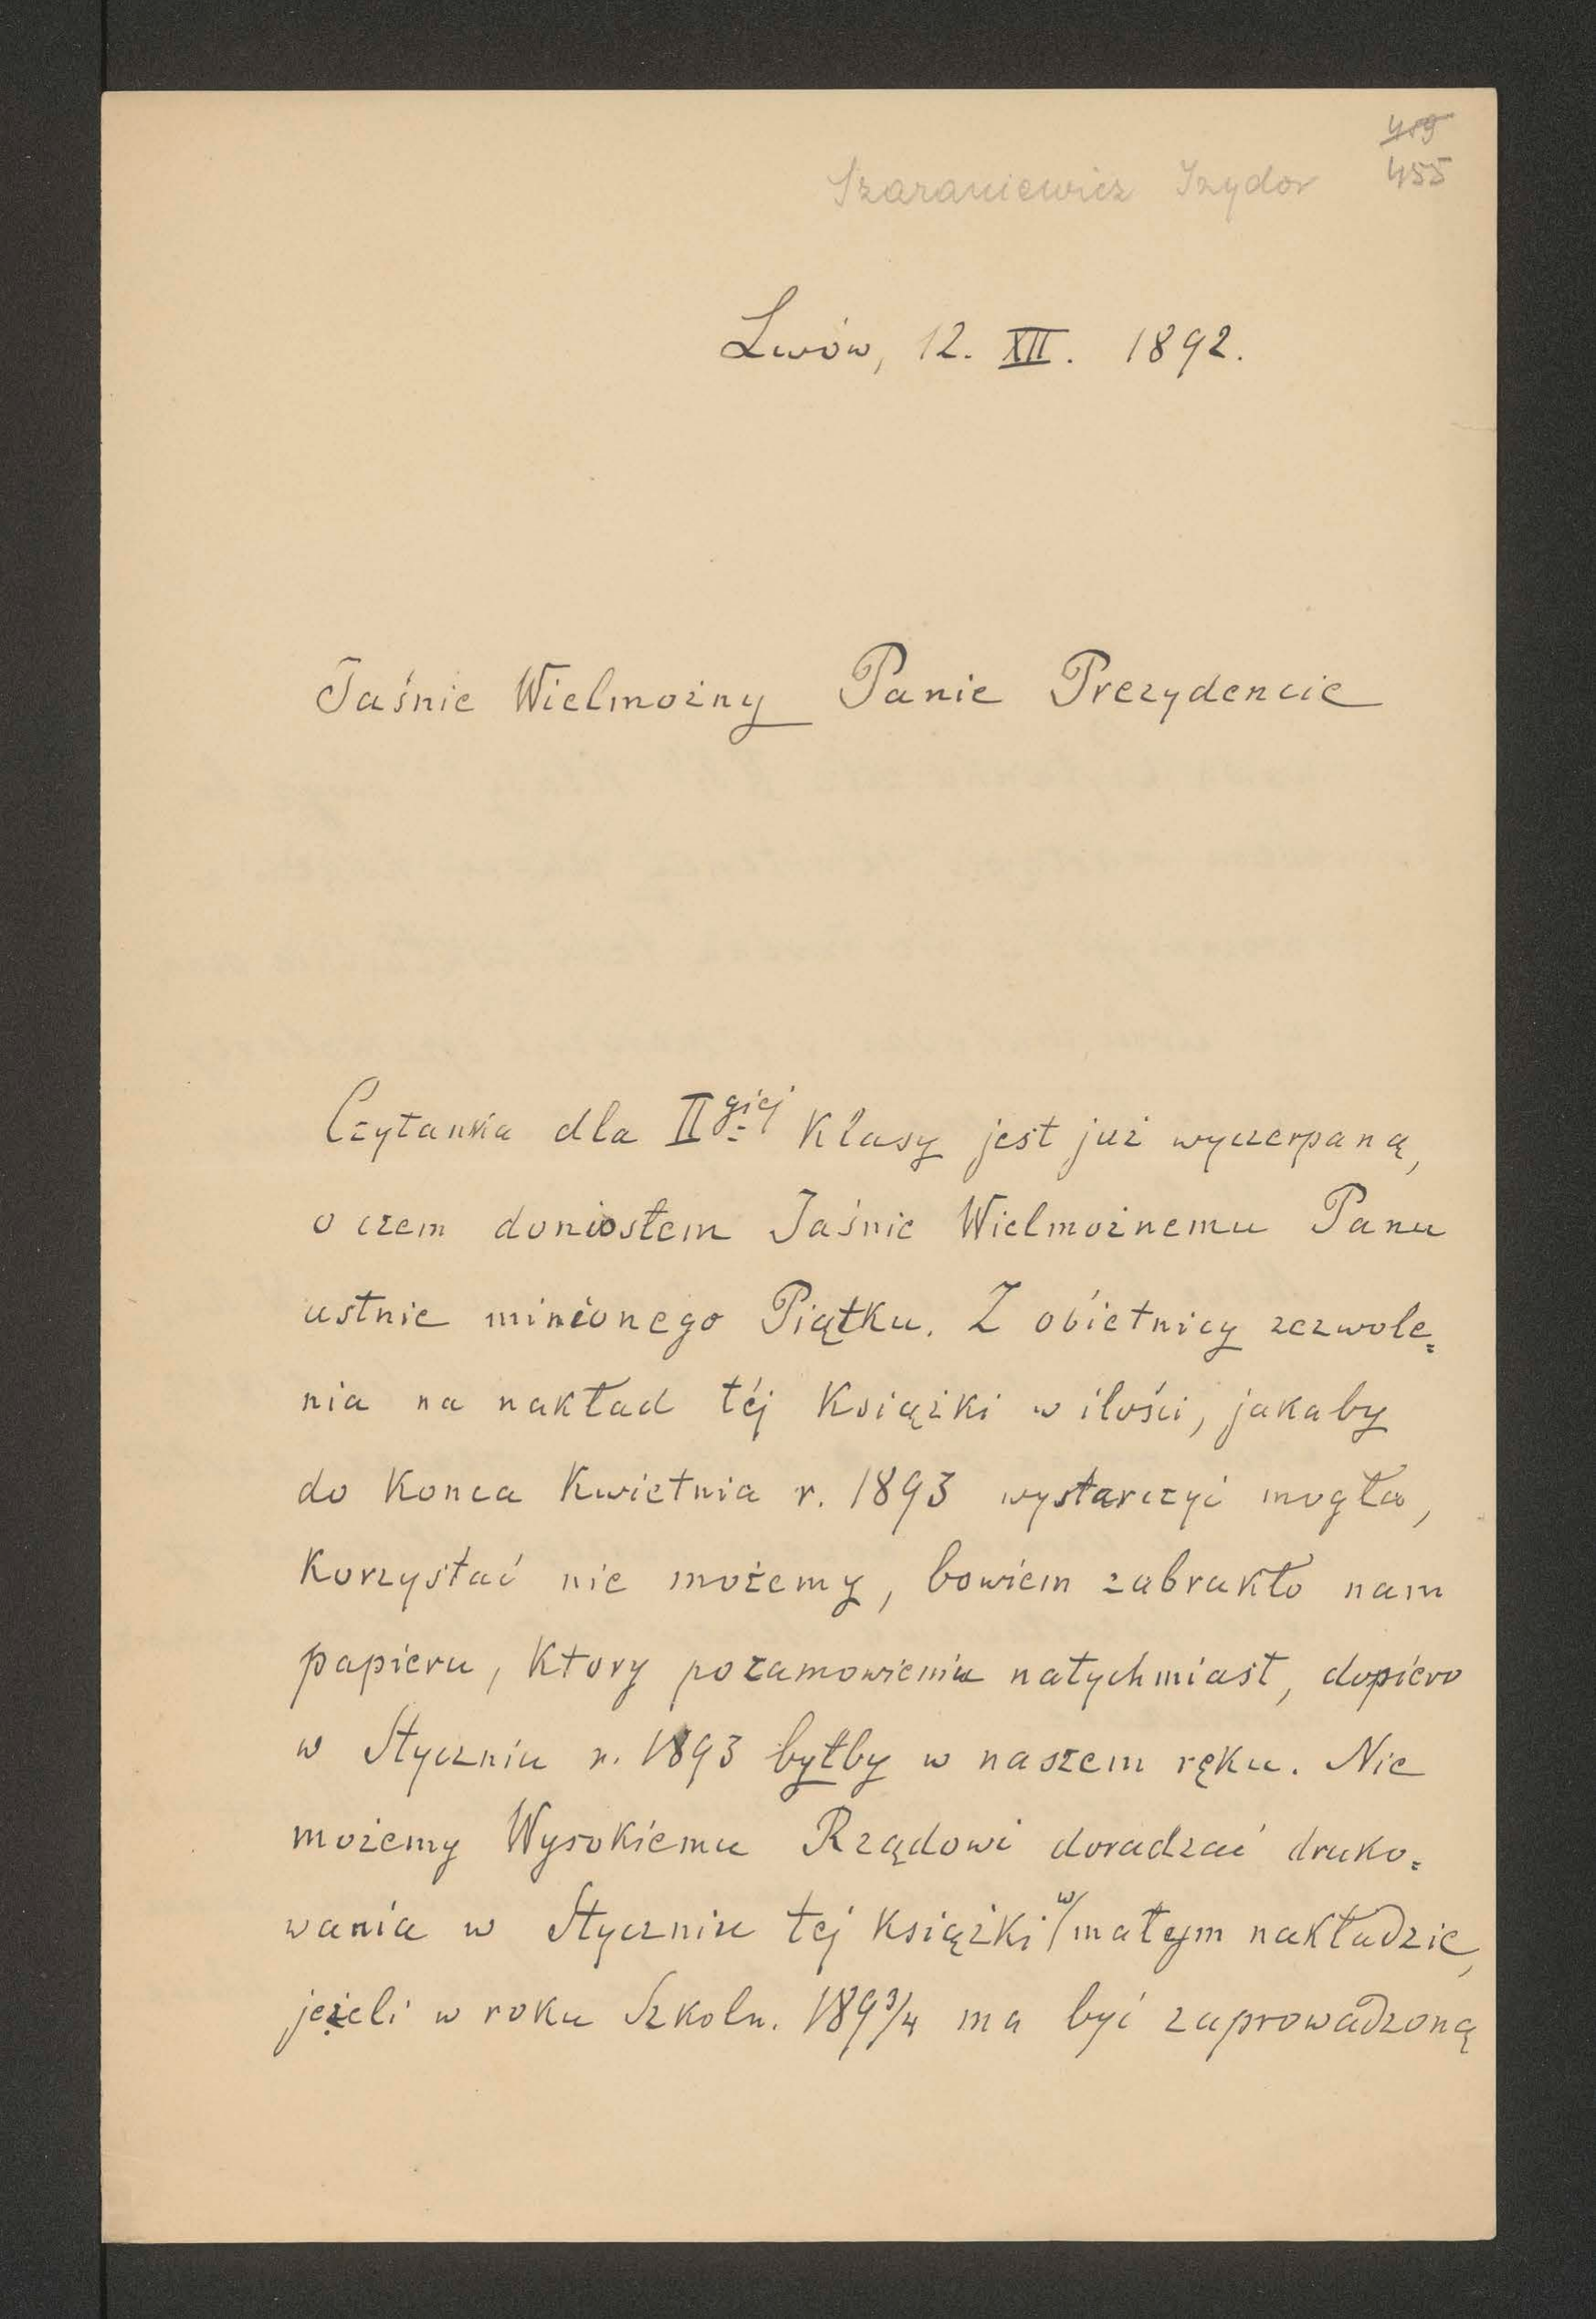 Szaraniewicz Izydor
455
Lwów, 12. XII. 1892.
Jaśnie Wielmożny Panie Prezydencie
Czytanka dla II giej Klasy jest już wyczerpaną,
o czem doniosłem Jaśnie Wielmożnemu Panu
ustnie minionego Piątku. Z obietnicy zezwole=
nia na nakład téj Książki w ilości, jakaby
do Konca Kwietnia r. 1893 wystarczyć mogła,
Korzystać nie możemy, bowiem zabrakło nam
papieru, Ktory po zamowieniu natychmiast, dopiero
w Styczniu r. 1893 byłby w naszem ręku. Nie
możemy Wysokiemu Rządowi doradzać druko=
wania w Styczniu tej Książki w małym nakładzie,
jeżeli w roku Szkoln. 189 3/4 ma być zaprowadzoną